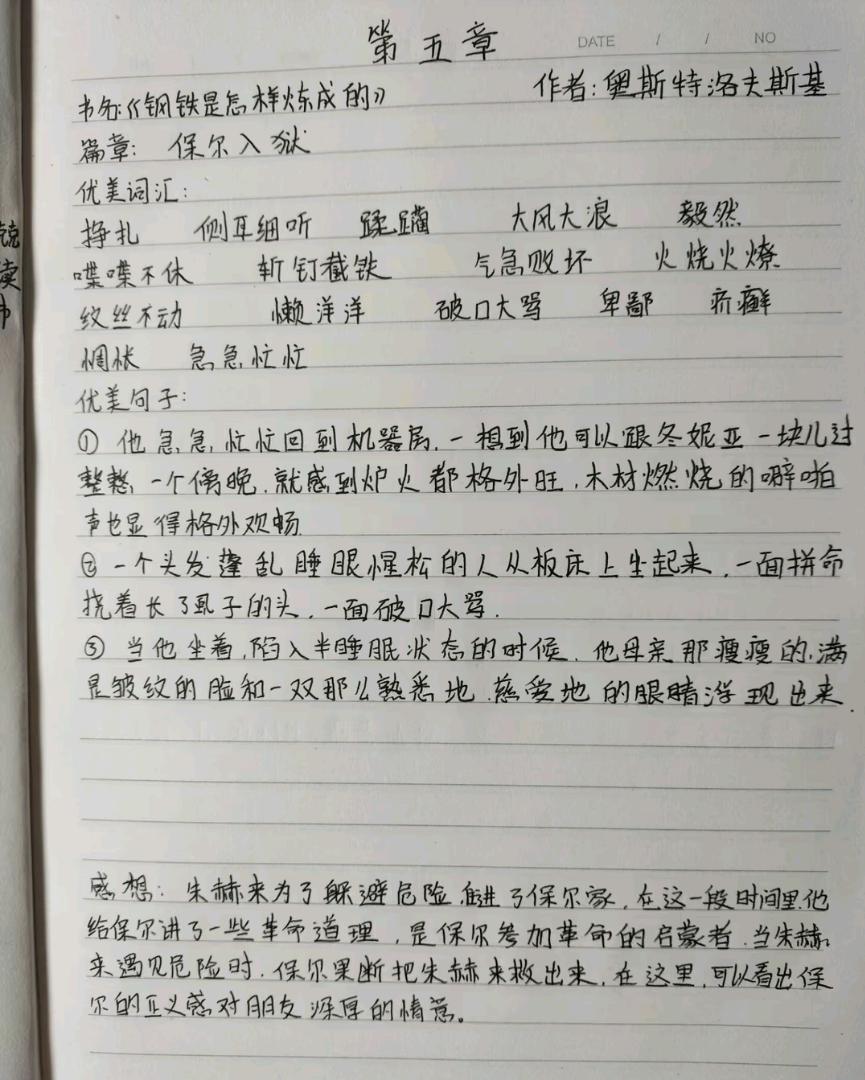 第五章
DATE / / NO
书名:《钢铁是怎样炼成的》 作者:奥斯特洛夫斯基
篇章: 保尔入狱
优美词汇:
挣扎 侧耳细听 蹂躏 大风大浪 毅然
喋喋不休 斩钉截铁 气急败坏 火烧火燎
纹丝不动 懒洋洋 破口大骂 卑鄙 疥癣
惆怅 急急忙忙
优美句子:
① 他急急忙忙回到机器房,一想到他可以跟冬妮亚一块儿过
整整一个傍晚,就感到炉火都格外旺,木材燃烧的噼啪
声也显得格外欢畅
② 一个头发蓬乱睡眼惺松的人从板床上坐起来,一面拼命
挠着长了虱子的头,一面破口大骂.
③ 当他坐着,陷入半睡眠状态的时候,他母亲那瘦瘦的,满
是皱纹的脸和一双那么熟悉地,慈爱地的眼睛浮现出来.
感想: 朱赫来为了躲避危险,住进了保尔家,在这一段时间里,他
给保尔讲了一些革命道理,是保尔参加革命的启蒙者.当朱赫
来遇见危险时,保尔果断把朱赫来救出来,在这里,可以看出保
尔的正义感对朋友深厚的情意。